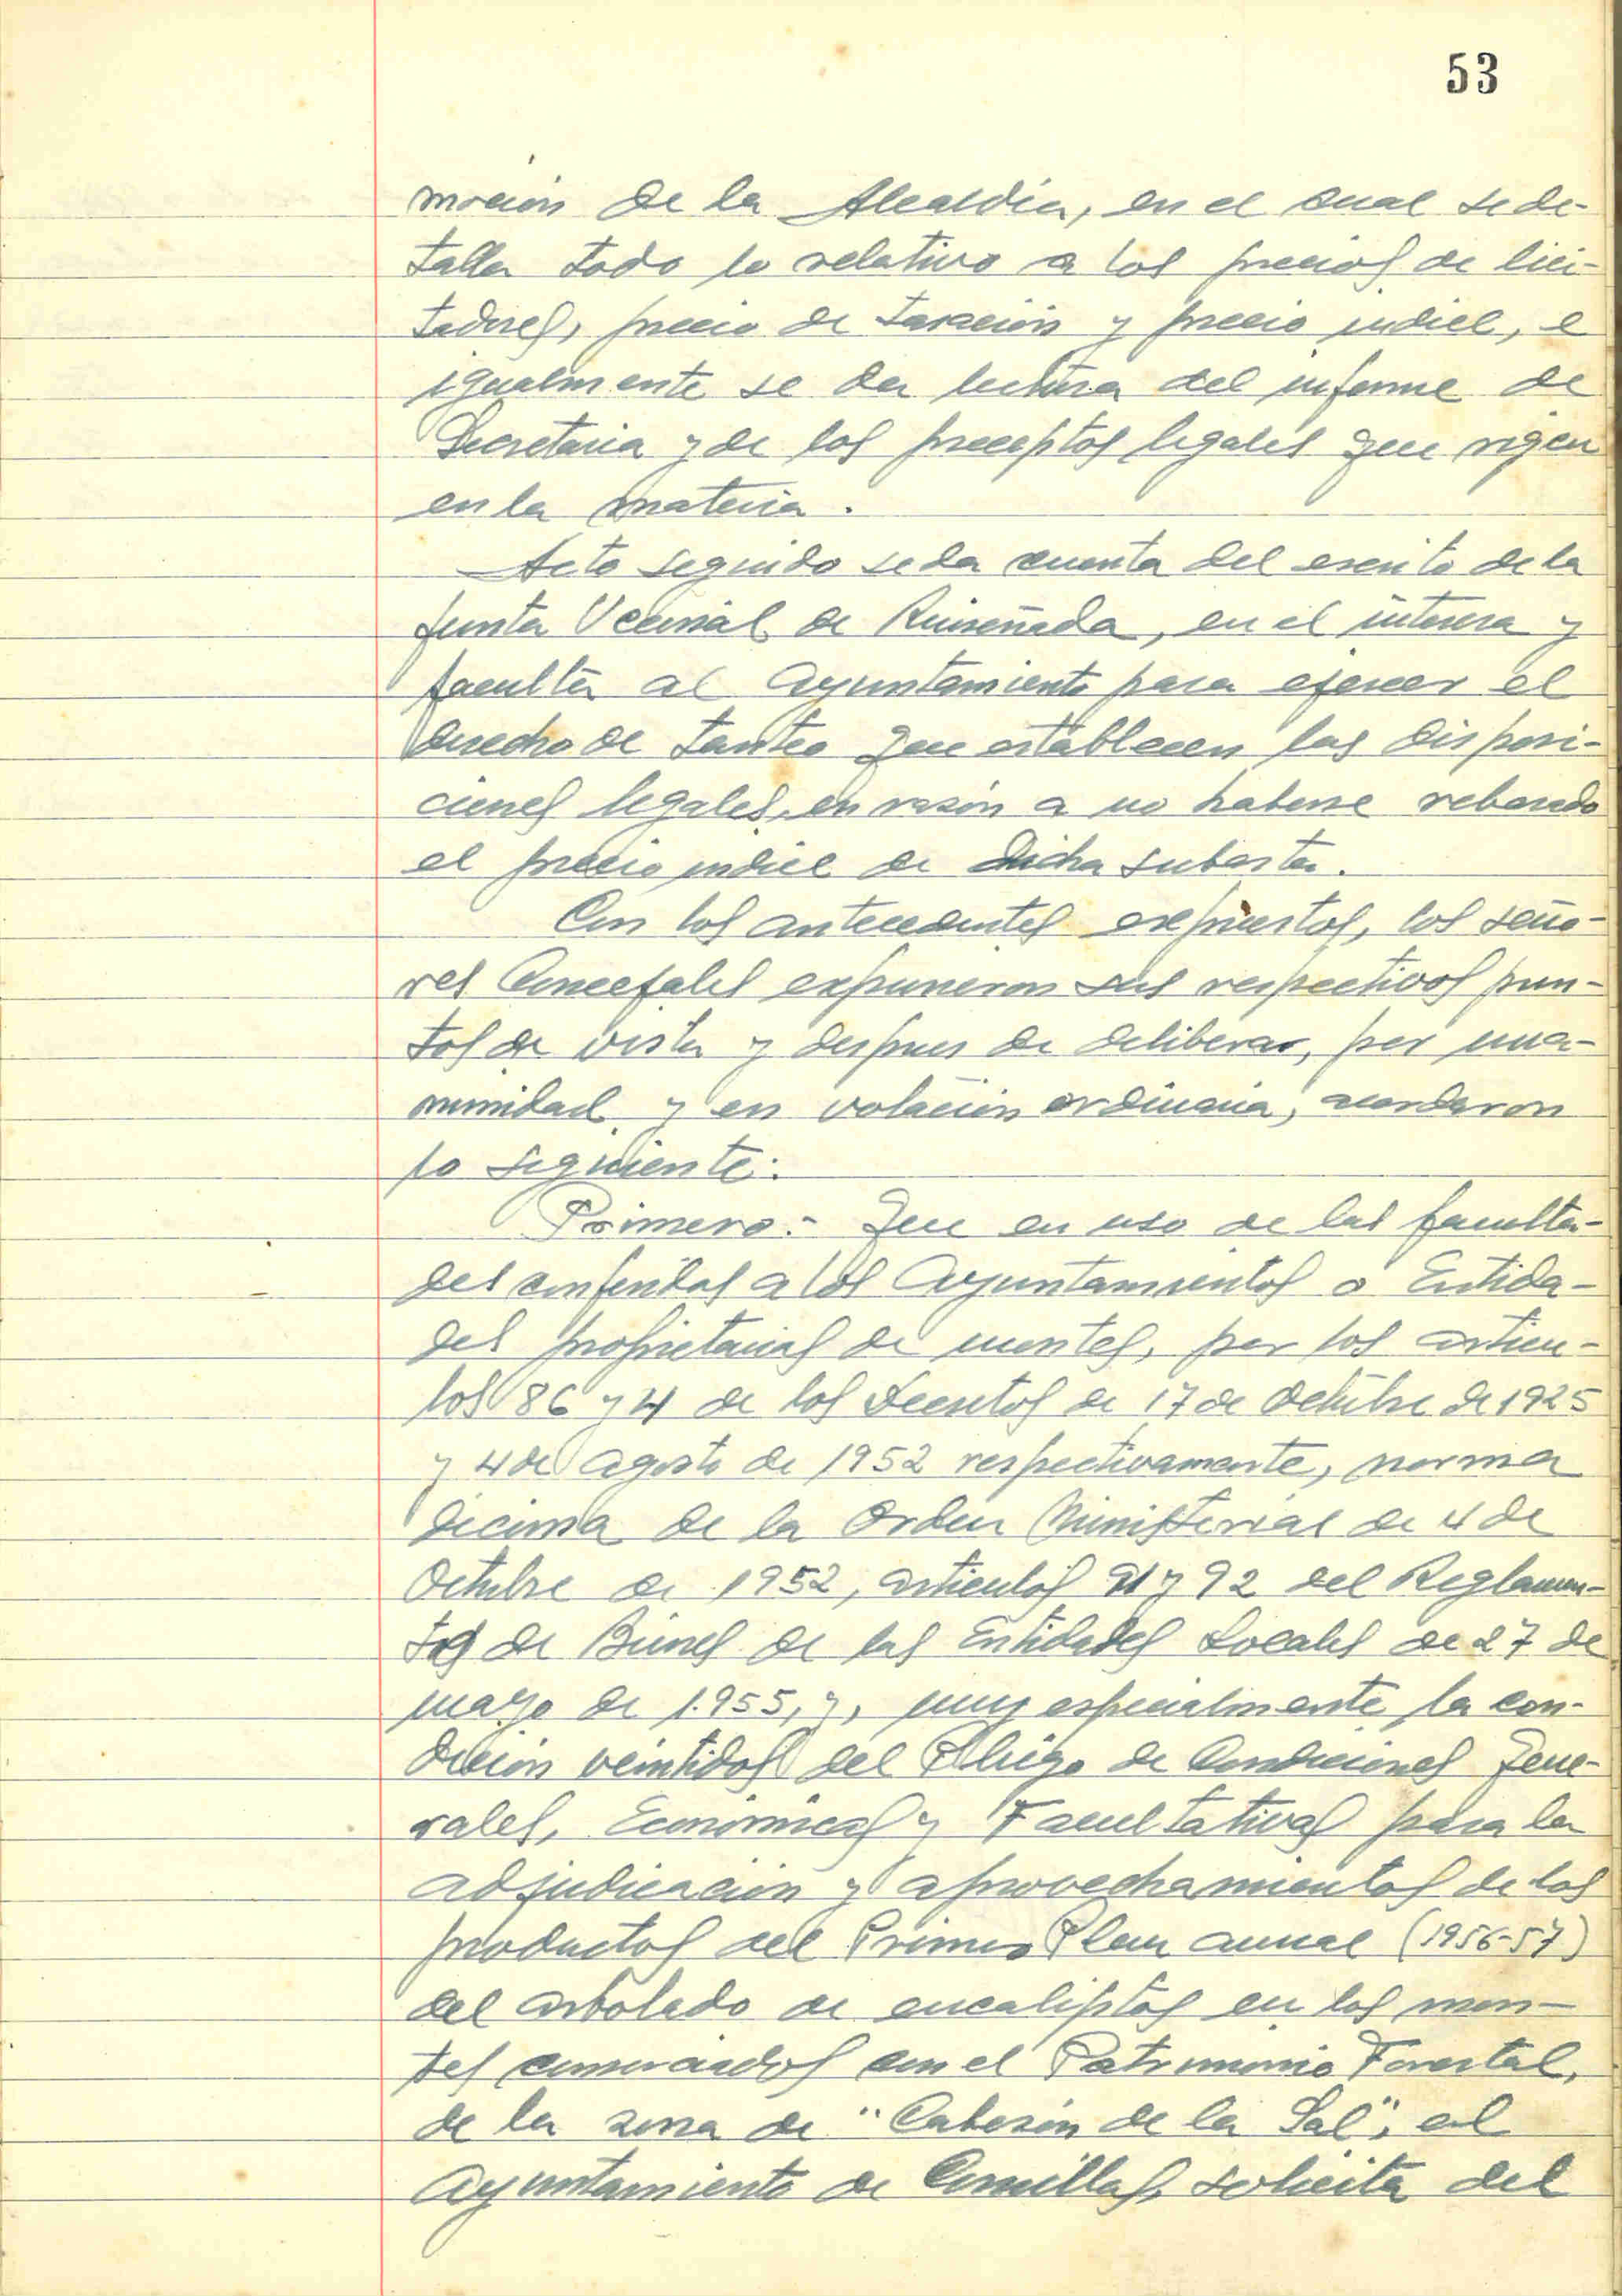 53
moción de la Alcaldía, en el cual se de-
talla todo lo relativo a los precios de lici-
tadores, precio de tasación y precio indice, e
igualmente se da lectura del informe de
Secretaria y de los preceptos legales que rigen
en la materia.
Acto seguido se da cuenta del escrito de la
Junta Vecinal de Ruiseñada, en el interesa y
faculta al Ayuntamiento para ejercer el
derecho de tanteo que establecen las disposi-
ciones legales, en razón a no haberse rebasado
el precio indice de dicha subasta.
Con los antecedentes expuestos, los seño-
res Concejales expusieron sus respectivos pun-
tos de vista y despues de deliberar, por una-
nimidad y en votación ordinaria, acordaron
lo siguiente:
Primero.- Que en uso de las faculta-
des conferidas a los Ayuntamientos o Entida-
des propietarias de montes, por los articu-
los 86 y 4 de los Decretos de 17 de Octubre de 1925
y 4 de Agosto de 1952 respectivamente, norma
décima de la Orden Ministerial de 4 de
Octubre de 1952, articulos 91 y 92 del Reglamen-
to de Bienes de las Entidades Locales de 27 de
mayo de 1.955, y, muy especialmente, la con-
dición veintidos del Pliego de Condiciones Gene-
rales, Económicas y Facultativas para la
adjudicación y aprovechamientos de los
productos del Primer Plan anual (1956-57)
del arbolado de eucaliptos en los mon-
tes consorciados con el Patrimonio Forestal,
de la zona de "Cabezón de la Sal", el
Ayuntamiento de Comillas, solicita del